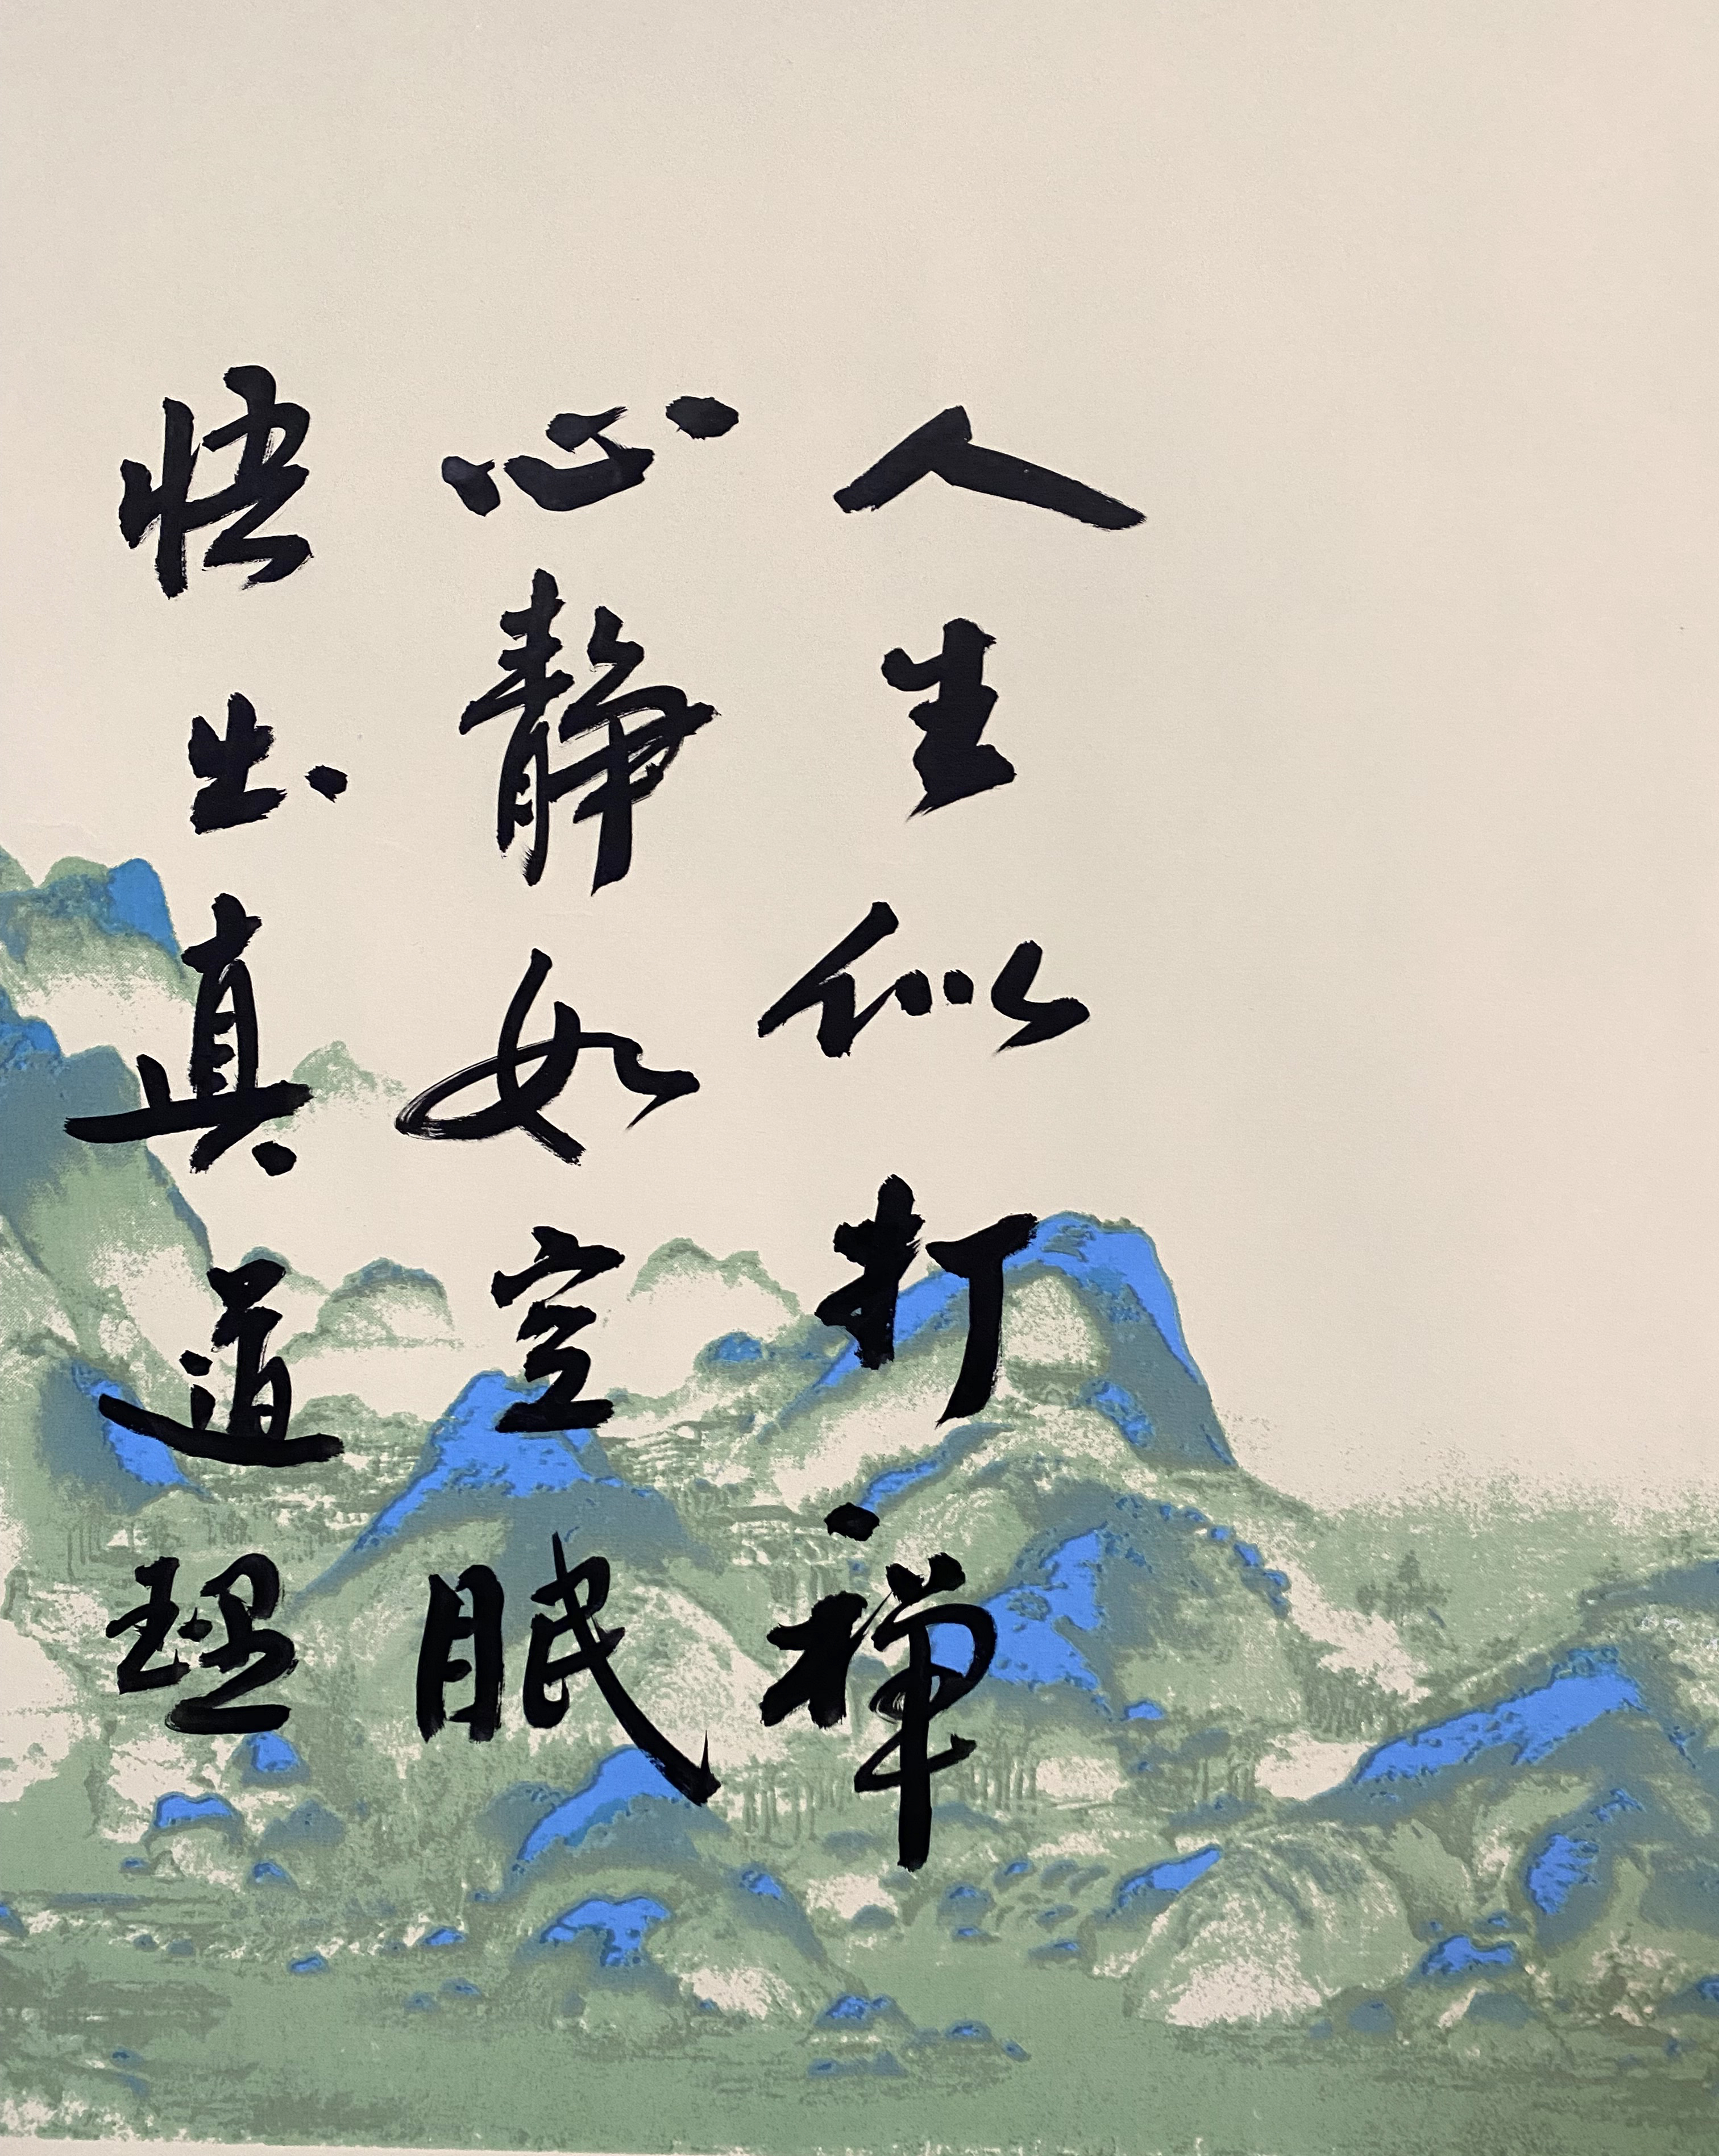 人生似打禅
心静如空眠
悟出真道理